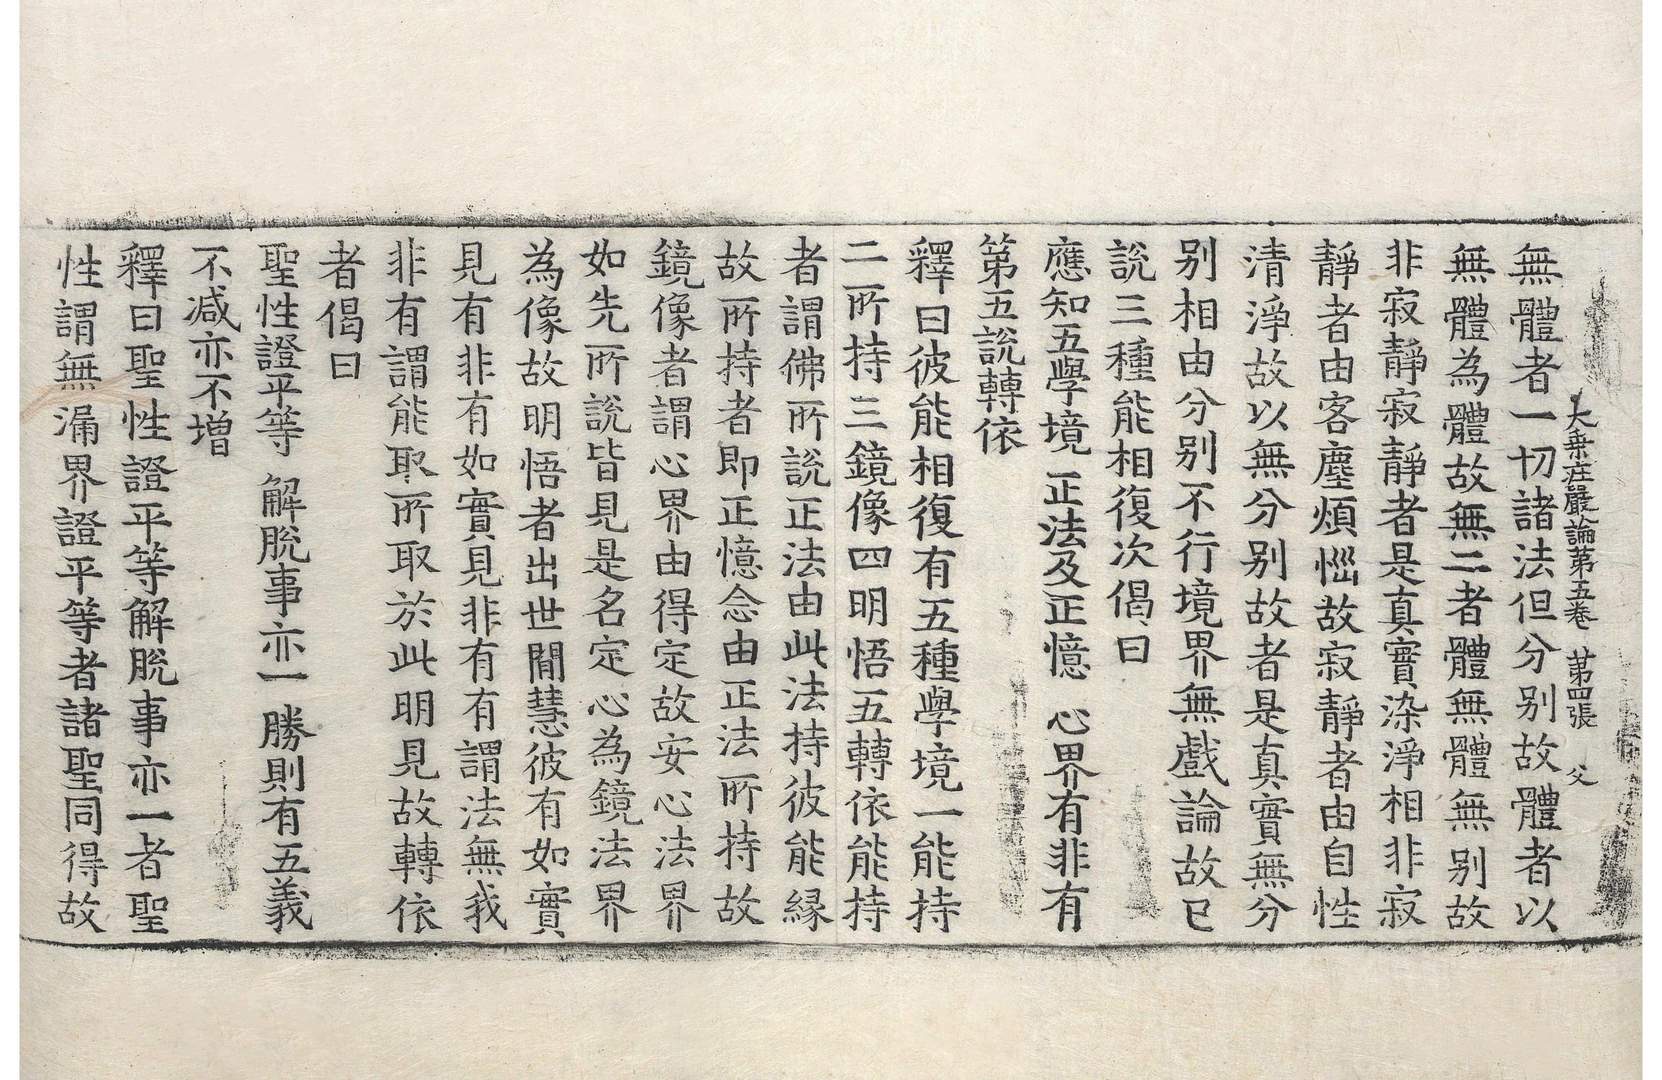 大乗莊嚴論第五卷 第四張 父
無體者一切諸法但分別故體者以
無體為體故無二者體無體無別故
非寂靜寂靜者是真實染淨相非寂
靜者由客塵煩惱故寂靜者由自性
清淨故以無分別故者是真實無分
別相由分別不行境界無戲論故已
說三種能相復次偈曰
應知五學境 正法及正憶 心界有非有
第五說轉依
釋曰彼能相復有五種學境一能持
二所持三鏡像四明悟五轉依能持
者謂佛所說正法由此法持彼能緣
故所持者即正憶念由正法所持故
鏡像者謂心界由得定故安心法界
如先所說皆見是名定心為鏡法界
為像故明悟者出世間慧彼有如實
見有非有如實見非有有謂法無我
非有謂能取所取於此明見故轉依
者偈曰
聖性證平等 解脫事亦一 勝則有五義
不減亦不增
釋曰聖性證平等解脫事亦一者聖
性謂無漏界證平等者諸聖同得故